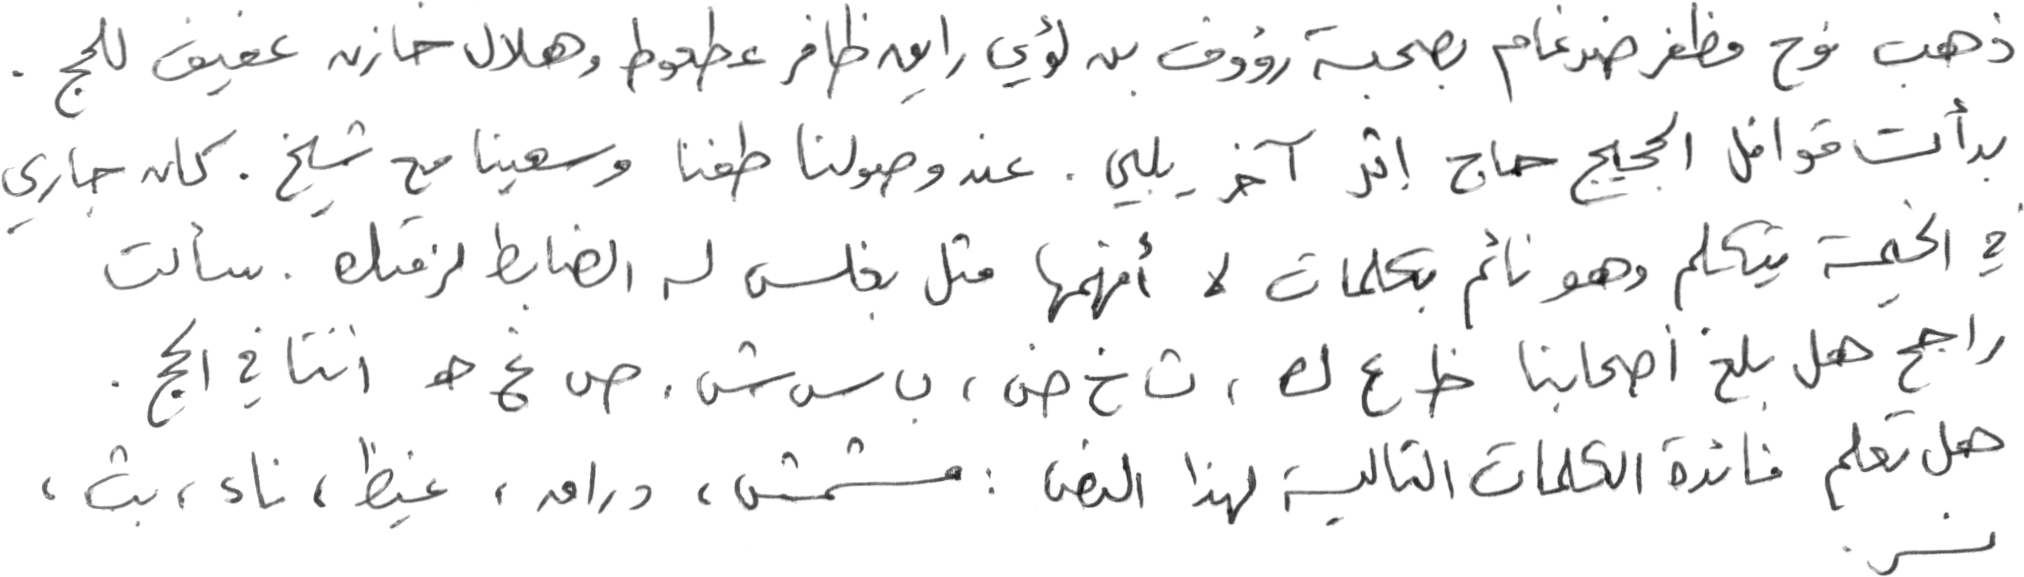 ذهب نوح مظفر ضرغام بصحبة رؤوف بن لؤي رايق ظافر عطعوط وهلال خازن عفيف للحج .
بدأت قوافل الحجيج حاج إثر آخر يلبي . عند وصولنا طفنا وسعينا مع شيخ . كان جاري
في الخيمة يتكلم وهو نائم بكلمات لا أفهمها مثل بغلس له الضابط لزقتك . سألت
راجح هل بلغ أصحابنا ظ ع ك ، ث خ ض ، ب س ش ، ص غ ه اننا في الحج .
هل تعلم فائدة الكلمات التالية لهذا النص : مشمش ، دراق ، غيظ ، ناء ، بث ،
نسر